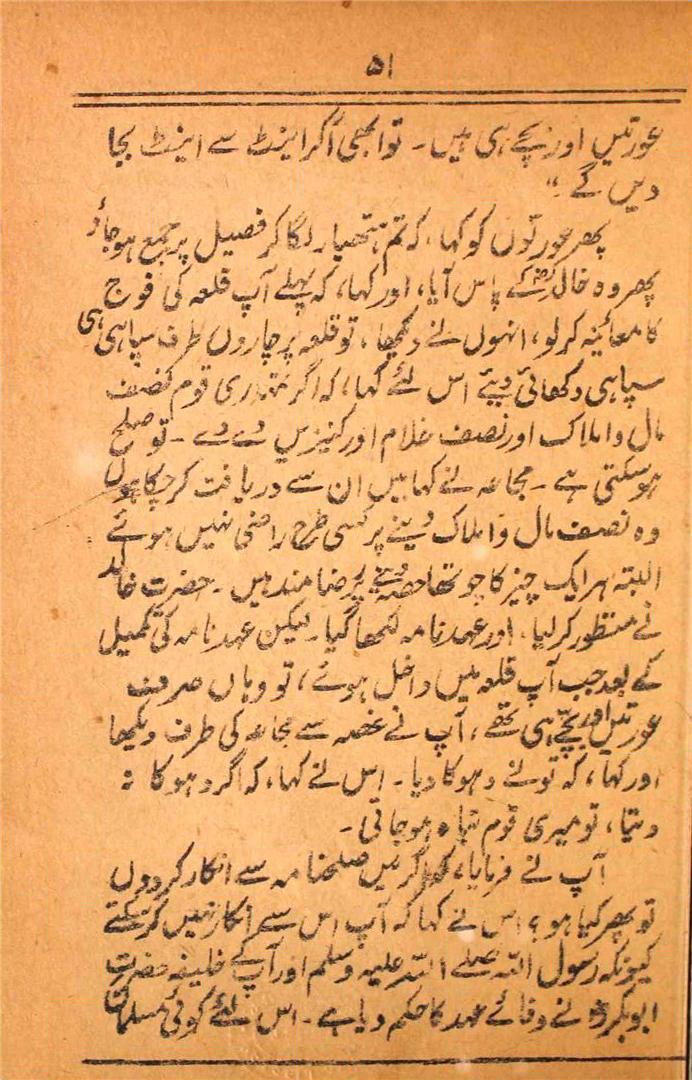 ۵۱
عورتیں اور بچے ہی ہیں۔ تو ابھی آکر اینٹ سے اینٹ بجا
دیں گے۔"
پھر عورتوں کو کہا، کہ تم ہتھیار لگا کر فصیل پر جمع ہو جاؤ
پھر وہ خالدؓ کے پاس آیا، اور کہا، کہ پہلے آپ قلعہ کی فوج
کا معائینہ کر لو، انہوں نے دیکھا، تو قلعہ پر چاروں طرف سپاہی ہی
سپاہی دکھائی دیئے اس لئے کہا، کہ اگر تمہاری قوم نصف
مال و املاک اور نصف غلام اور کنیزیں دے دے۔ تو صلح
ہو سکتی ہے۔ مجاعہ نے کہا میں ان سے دریافت کر چکا ہوں
وہ نصف مال و املاک دینے پر کسی طرح راضی نہیں ہوتے
البتہ ہر ایک چیز کا چوتھا حصہ دینے پر رضامند ہیں۔ حضرت خالد
نے منظور کر لیا۔ اور عہد نامہ لکھا گیا۔ لیکن عہد نامہ کی تکمیل
کے بعد جب آپ قلعہ میں داخل ہوئے، تو وہاں صرف
عورتیں اور بچے ہی تھے، آپ نے غصہ سے مجاعہ کی طرف دیکھا
اور کہا، کہ تو نے دہوکا دیا۔ اس نے کہا، کہ اگر دہوکا نہ
دیتا، تو میری قوم تباہ ہو جاتی۔
آپ نے فرمایا، کہ اگر میں صلحنامہ سے انکار کر دوں
تو پھر کیا ہو؟ اس نے کہا کہ آپ اس سے انکار نہیں کر سکتے
کیونکہ رسول اللہ صلے اللہ علیہ وسلم اور آپ کے خلیفہ حضرت
ابوبکرؓ نے وفائے عہد کا حکم دیا ہے۔ اس لئے کوئی مسلمان